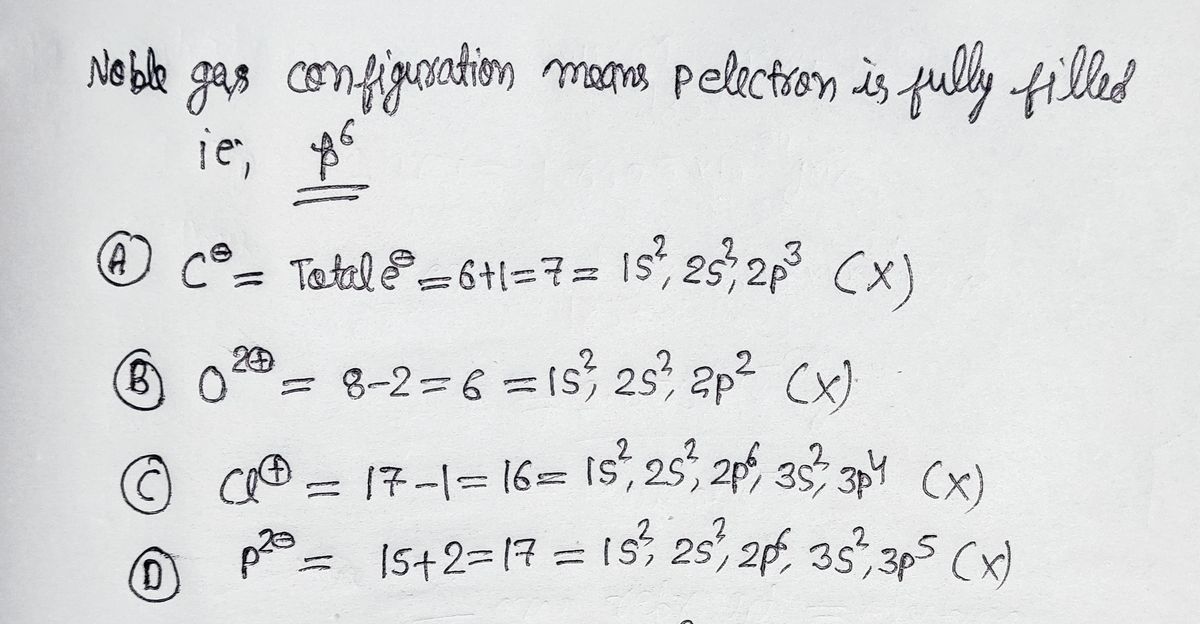 Noble gas configuration means p electron is fully filled
ie, p⁶
Ⓐ C^⊖ = Total e^⊖ = 6+1=7= 1s², 2s², 2p³ (X)
Ⓑ O^2⊕ = 8-2=6 =1s², 2s², 2p² (X)
Ⓒ Cl^⊕ = 17-1=16= 1s², 2s², 2p⁶, 3s², 3p⁴ (X)
Ⓓ P^2⊖ = 15+2=17 = 1s², 2s², 2p⁶, 3s², 3p⁵ (X)